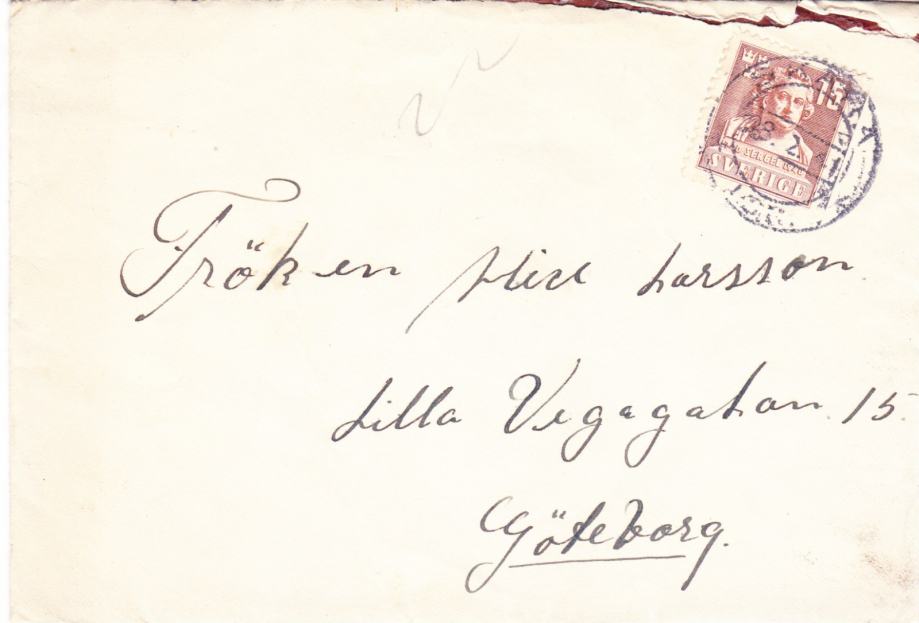 15
SERGEL 1740
SVERIGE
Fröken Larsson
Lilla Vegagatan. 15.
Göteborg.